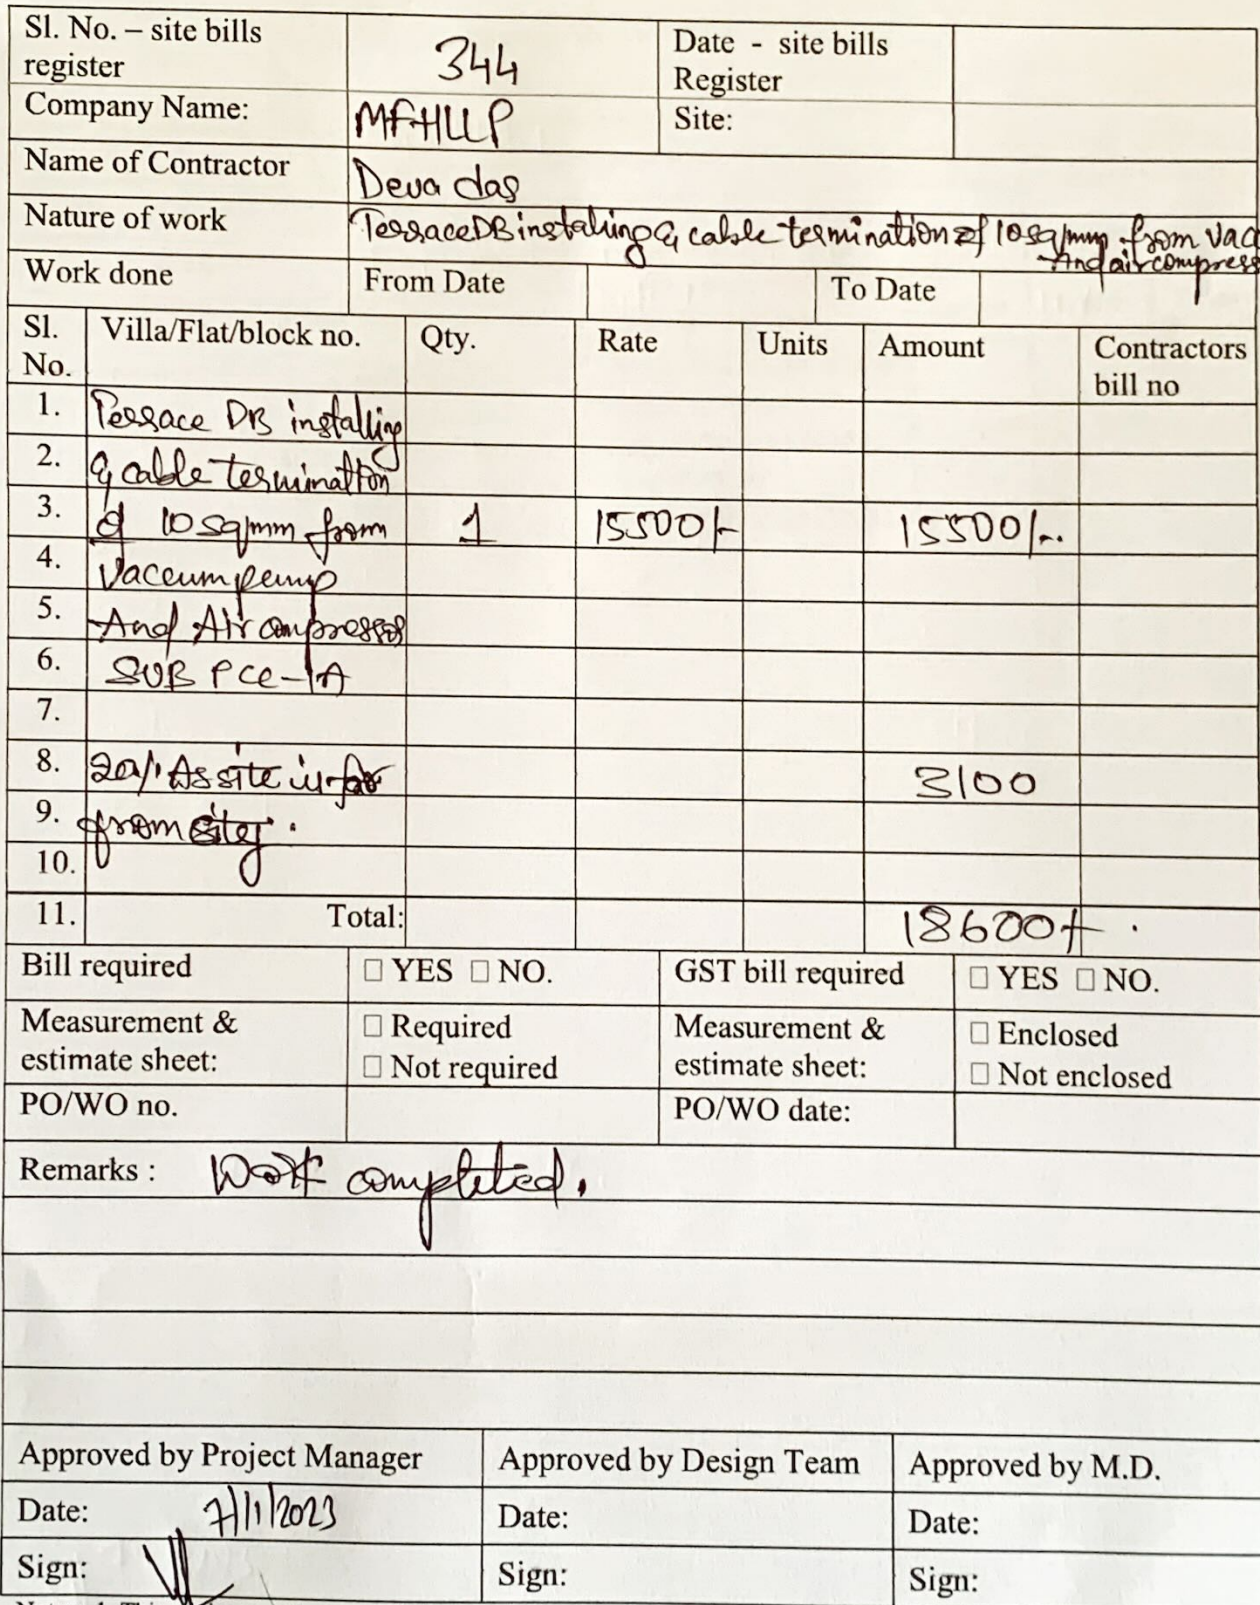 Sl. No. – site bills register 344 Date - site bills Register
Company Name: MFHLLP Site:
Name of Contractor Deva das
Nature of work Terrace DB installing & cable termination of 10 sq/mm from vac
And air compress
Work done From Date To Date
Sl. No. Villa/Flat/block no. Qty. Rate Units Amount Contractors bill no
1. Terrace DB installing
2. & cable termination
3. of 10 sq/mm from 1 15500/- 15500/-.
4. Vaceum pump
5. And Air compressor
6. SUB PCC-1A
7.
8. 20% As site is far 3100
9. from city.
10.
11. Total: 18600/-.
Bill required □ YES □ NO. GST bill required □ YES □ NO.
Measurement & estimate sheet: □ Required □ Not required Measurement & estimate sheet: □ Enclosed □ Not enclosed
PO/WO no. PO/WO date:
Remarks : Work completed.
Approved by Project Manager Approved by Design Team Approved by M.D.
Date: 7/1/2023 Date: Date:
Sign: Sign: Sign: